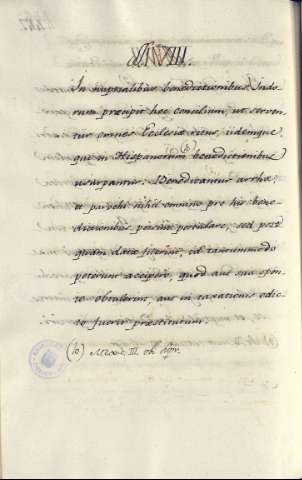 In nuptialibus benedictionibus Indo-
rum præcipit hoc concilium, ut serven-
tur omnes Ecclesiæ ritus, iidemque
qui in Hispanorum benedictionibus
(b)
usurpantur: Benedicantur arrhæ;
et parochi nihil omnino pro his bene-
dictionibus possint postulare, sed post
quam datæ fuerint, id tantummodo
poterunt accipere, quod aut sua spon-
te obtulerint, aut in taxationis edic-
to fuerit præstitutum.
(b) Mexic. III.